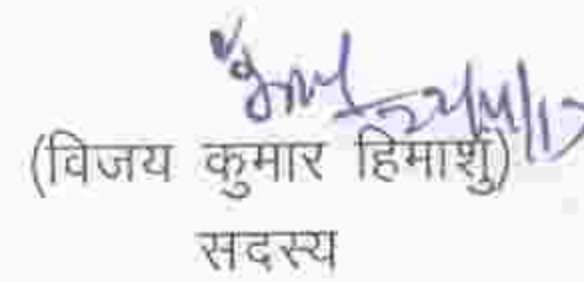 (विजय कुमार हिमाशु)
सदस्य